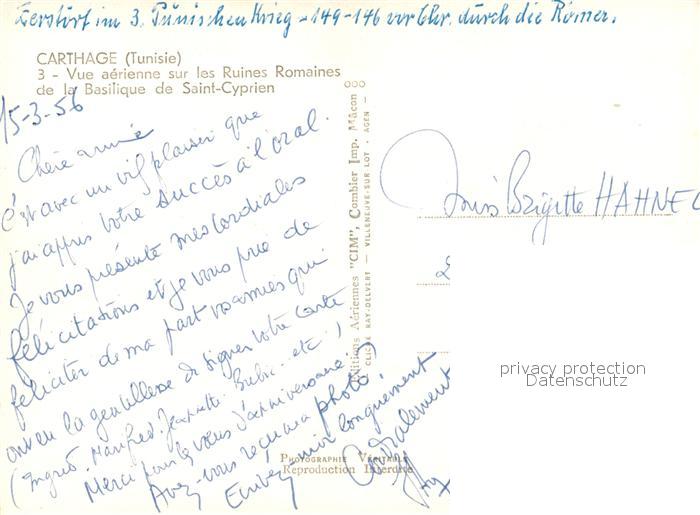 Zerstört im 3. Punischen Krieg - 149-146 vor Chr. durch die Römer.
CARTHAGE (Tunisie)
3 - Vue aérienne sur les Ruines Romaines
de la Basilique de Saint-Cyprien
15-3-56
Chère amie
c'est avec un vif plaisir que
j'ai appris votre succès à l'oral.
Je vous présente mes cordiales
félicitations et je vous prie de
féliciter de ma part vos amies qui
ont eu la gentillesse de signer votre carte
(Ingrid, Manfred, Jeannette, etc)
Merci pour les vœux d'anniversaire.
Avez-vous reçu ma photo?
Ecrivez moi longuement
Cordialement
Editions Aériennes "CIM", Combier Imp. Mâcon
CLICHÉ RAY-DELVERT - VILLENEUVE-SUR-LOT - AGEN -
PHOTOGRAPHIE VÉRITABLE
Reproduction Interdite
Brigitte HAHNE
privacy protection
Datenschutz